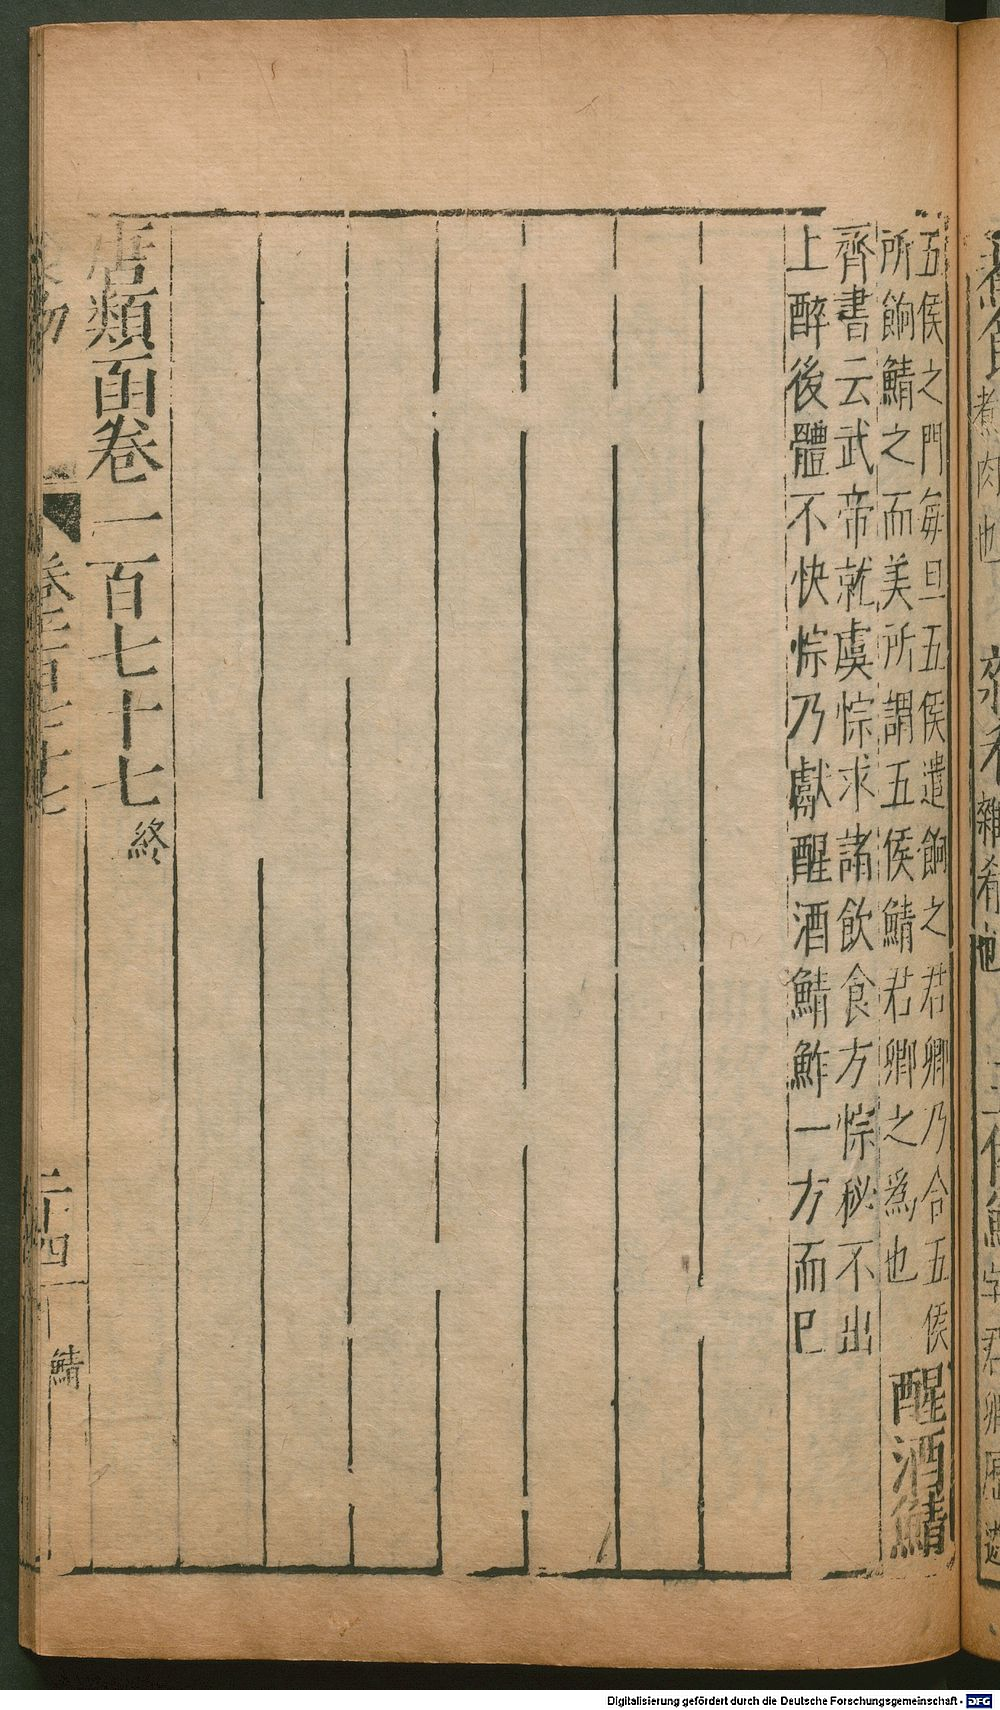 五侯之門每旦五侯遣餉之君卿乃合五侯
所餉鯖之而美所謂五侯鯖君卿之爲也
醒酒鯖
齊書云武帝就虞悰求諸飲食方悰秘不出
上醉後體不快悰乃獻醒酒鯖鮓一方而巳
唐類函卷一百七十七終
卷一百七十七
二十四
鯖
Digitalisierung gefördert durch die Deutsche Forschungsgemeinschaft - DFG